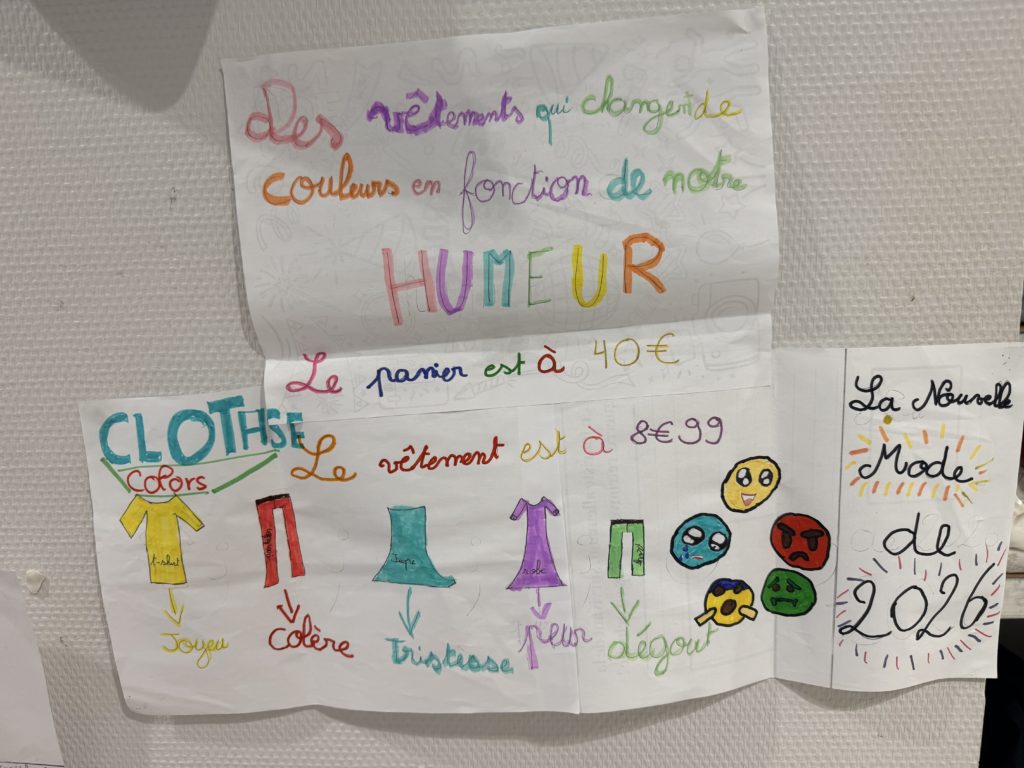 Des vêtements qui changent de
couleurs en fonction de notre
HUMEUR
Le panier est à 40€
CLOTHSE
Colors
Le vêtement est à 8€99
t-shirt
Jupe
robe
Joyeu
colère
tristesse
peur
dégout
La Nouvelle
Mode
de
2026